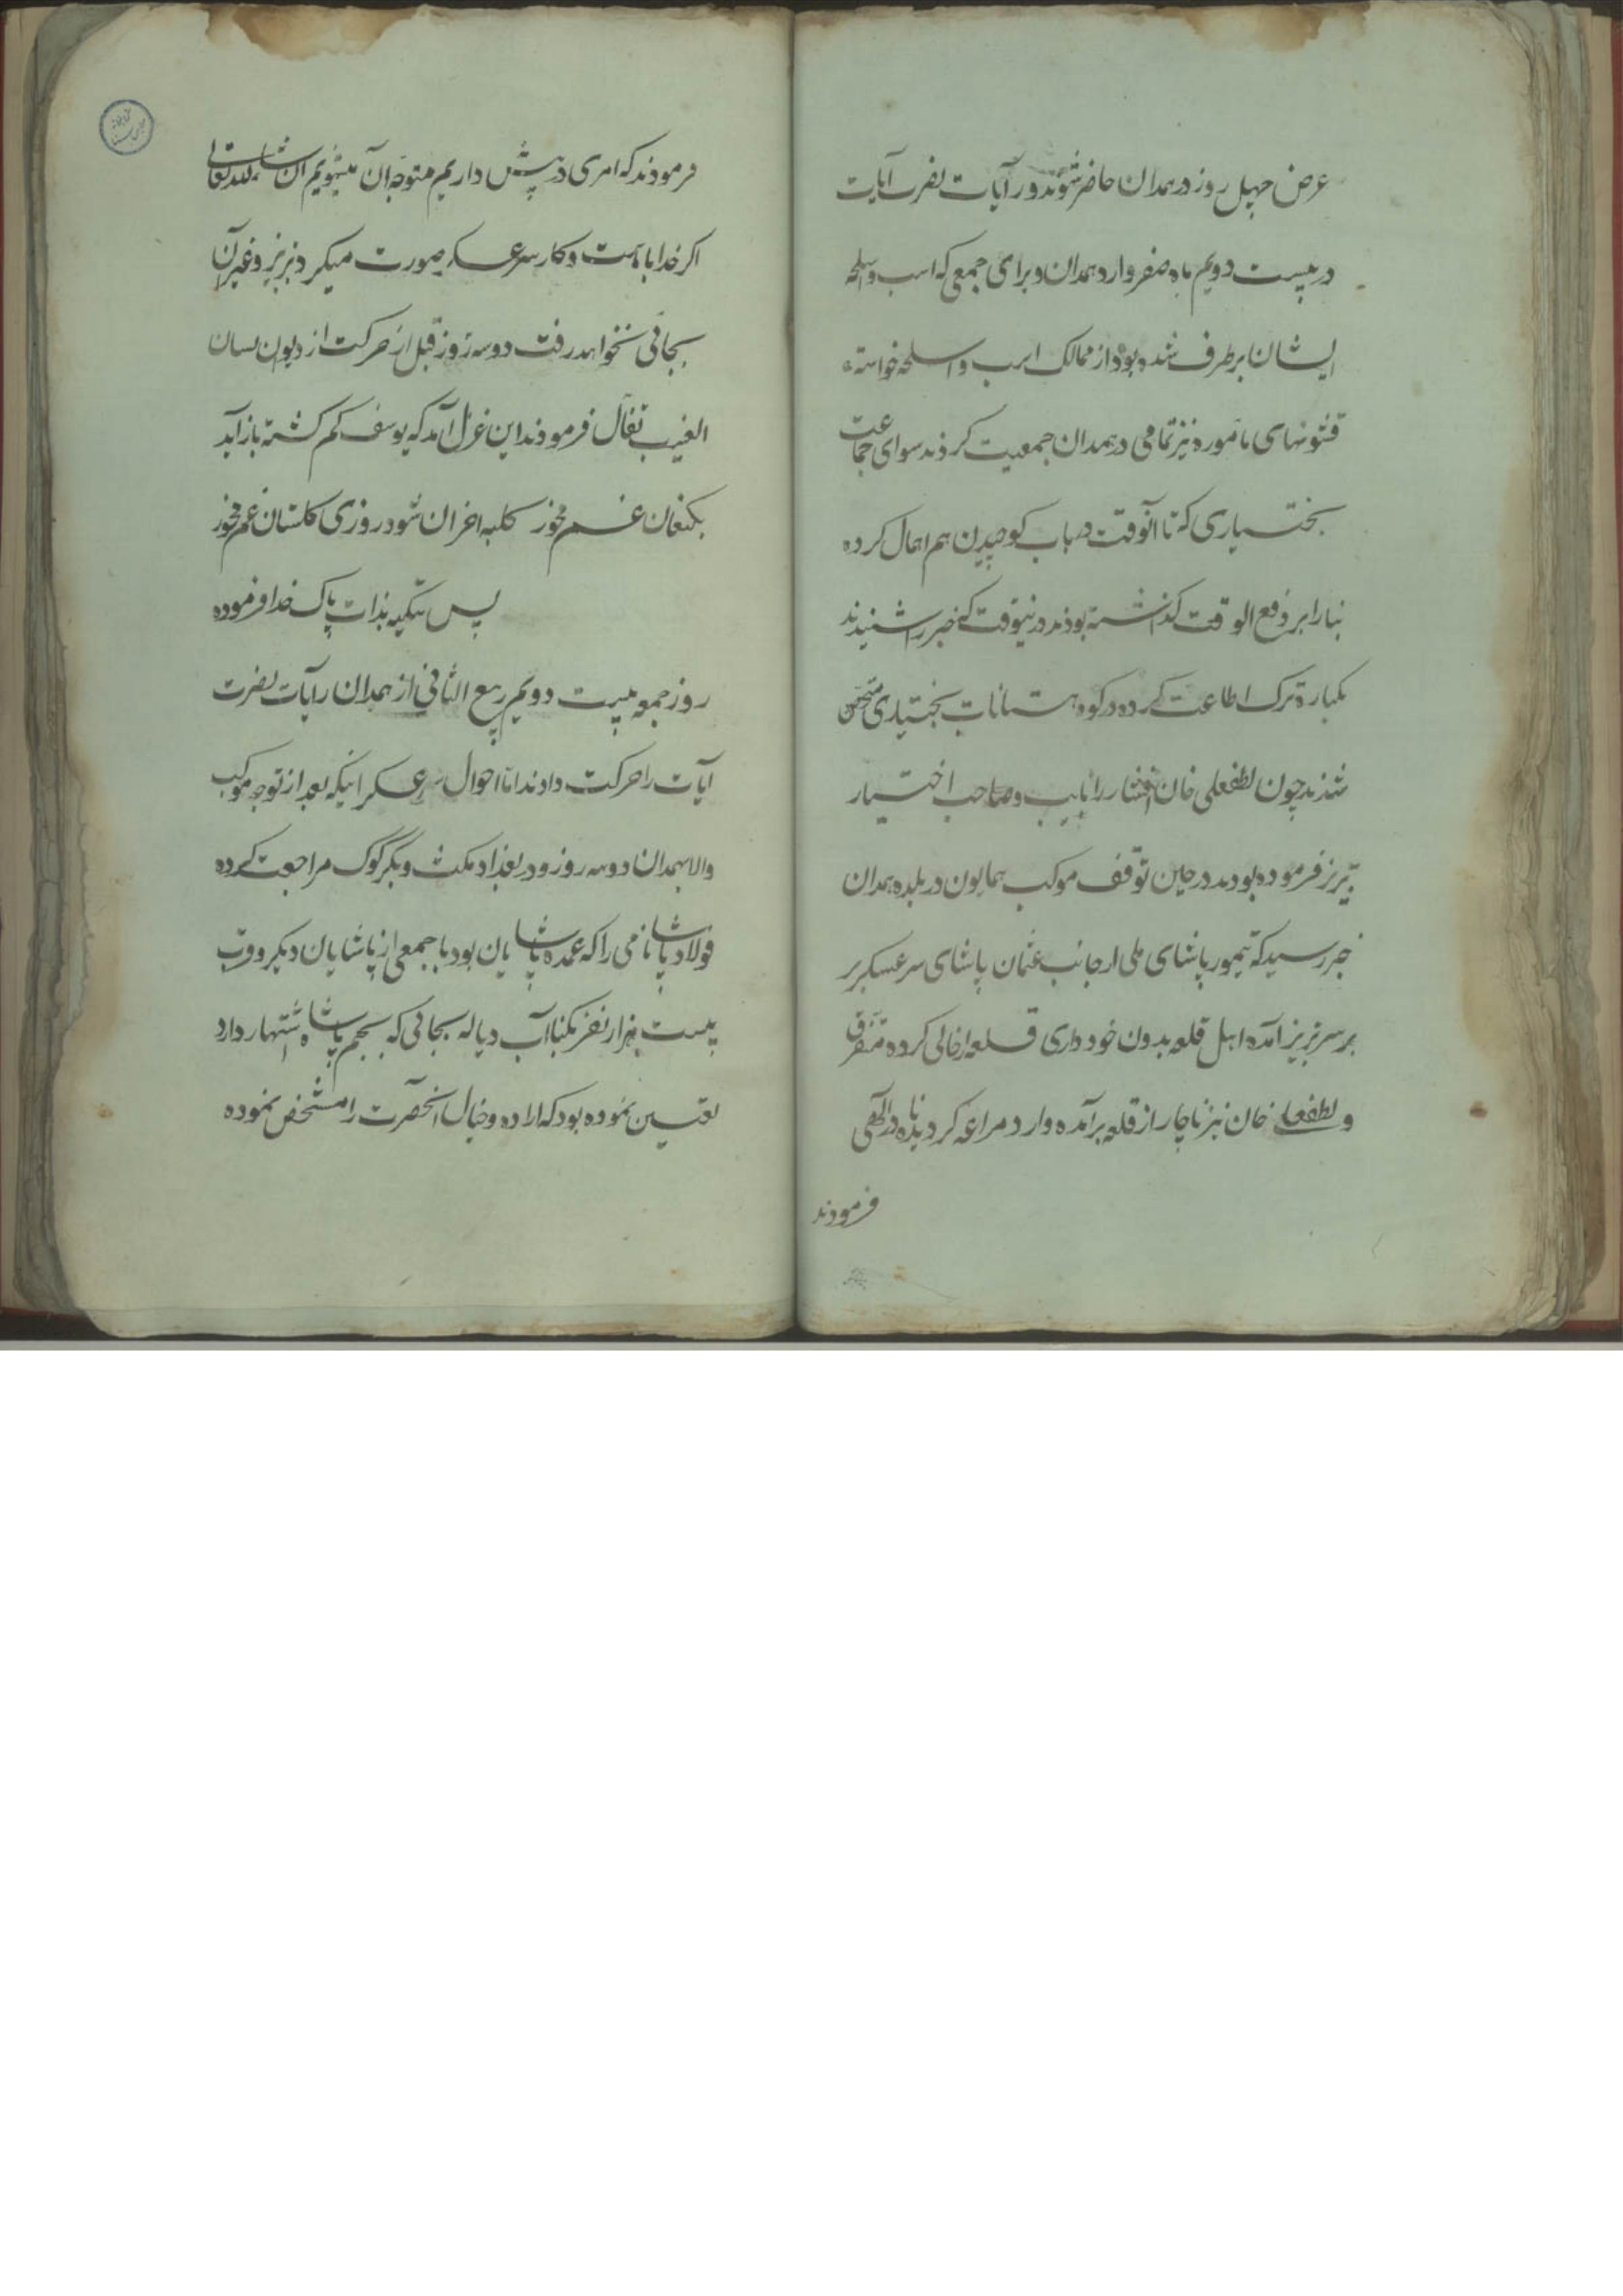 عرض چهل روز در همدان حاضر شوند و رایات نصرت آیات
در بیست دویم ماه صفر وارد همدان و برای جمعی که اسب و اسلحه
ایشان برطرف شده بود از ممالک اسب و اسلحه خواسته
قشونهای مأموره نیز تمامی در همدان جمعیت کردند سوای جماعت
بختیاری که تا آنوقت در باب کوچیدن هم اهمال کرده
بنا را بر دفع الوقت گذاشته بودند درینوقت که خبر را شنیدند
یکباره ترک اطاعت کرده در کوهستانات بختیاری متحصن
شدند چون لطفعلی خان افشار را نایب و صاحب اختیار
تبریز فرموده بودند در حین توقف موکب همایون در بلده همدان
خبر رسید که تیمور پاشای ملی از جانب عثمان پاشای سرعسکر بر
بر سر تبریز آمده اهل قلعه بدون خودداری قلعه را خالی کرده متفرق
و لطفعلی خان نیز ناچار از قلعه برآمده وارد مراغه گردیده
فرمودند
فرمودند که امری در پیش داریم متوجه آن میشویم ان شاء الله تعالی
اگر خدا با ماست و کار سرعسکر صورت میگیرد تبریز و غیر آن
بجائی نخواهد رفت دو سه روز قبل از حرکت از دیوان لسان
الغیب تفأل فرمودند این غزل آمد که یوسف گم گشته باز آید
بکنعان غم مخور کلبه احزان شود روزی گلستان غم مخور
پس تکیه بذات پاک خدا فرموده
روز جمعه بیست دویم ربیع الثانی از همدان رایات نصرت
آیات را حرکت دادند اما احوال سرعسکر اینکه بعد از توجه موکب
والا بهمدان دو سه روز در بغداد مکث و بکرکوک مراجعت کرده
فولاد پاشا نامی را که عمده پاشایان بود با جمعی از پاشایان دیگر و قرب
بیست هزار نفر بکنار آب دیاله بجائی که بجم پاشا اشتهار دارد
تعیین نموده بود که اراده و خیال آنحضرت را مشخص نموده